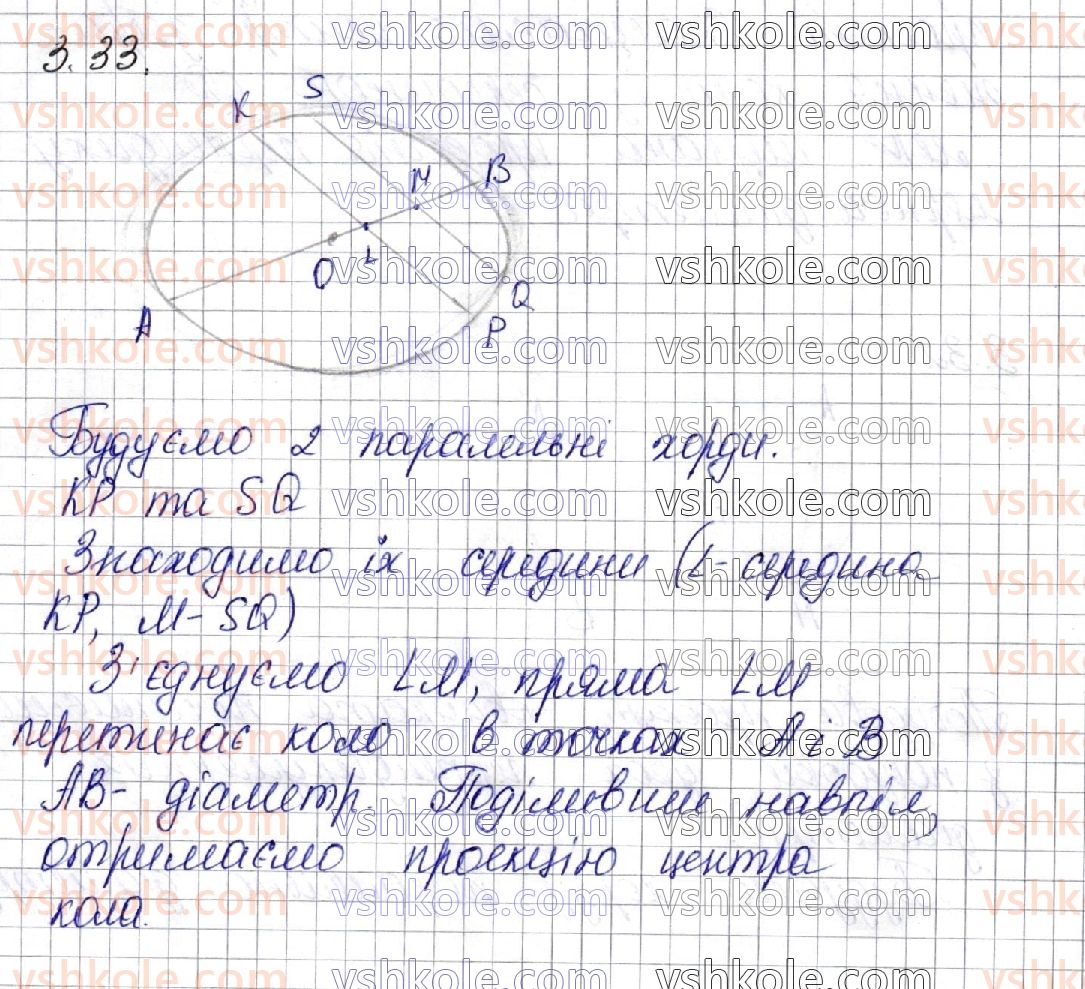 3.33.
K S M B O L A Q P
Будуємо 2 паралельні хорди.
KP та SQ
Знаходимо їх середини (L-середина
KP, M-SQ)
З'єднуємо LM, пряма LM
перетинає коло в точках A і B
AB- діаметр. Поділивши навпіл,
отримаємо проекцію центра
кола.